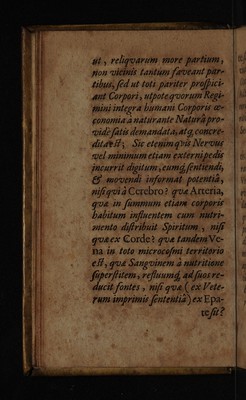 ut, reliqvarum more partium,
non vicinis tantum faveant par-
tibus, sed ut toti pariter prospici-
ant Corpori, utpote qvorum Regi-
mini integra humani Corporis œ-
conomia à naturante Natura pro-
vide satis demandata, atq; concre-
dita est; Sic etenim qvis Nervus
vel minimum etiam externi pedis
incurrit digitum, eumq; sentiendi,
& movendi informat potentiâ,
nisi qvi à Cerebro? qvæ Arteria,
qvæ in summum etiam corporis
habitum influentem cum nutri-
mento distribuit Spiritum, nisi
qvæ ex Corde? qvæ tandem Ve-
na in toto microcosmi territorio
est, qvæ Sangvinem à nutritione
superstitem, refluumq; ad suos re-
ducit fontes, nisi qvæ (ex Vete-
rum imprimis sententiâ) ex Epa-
te sit?